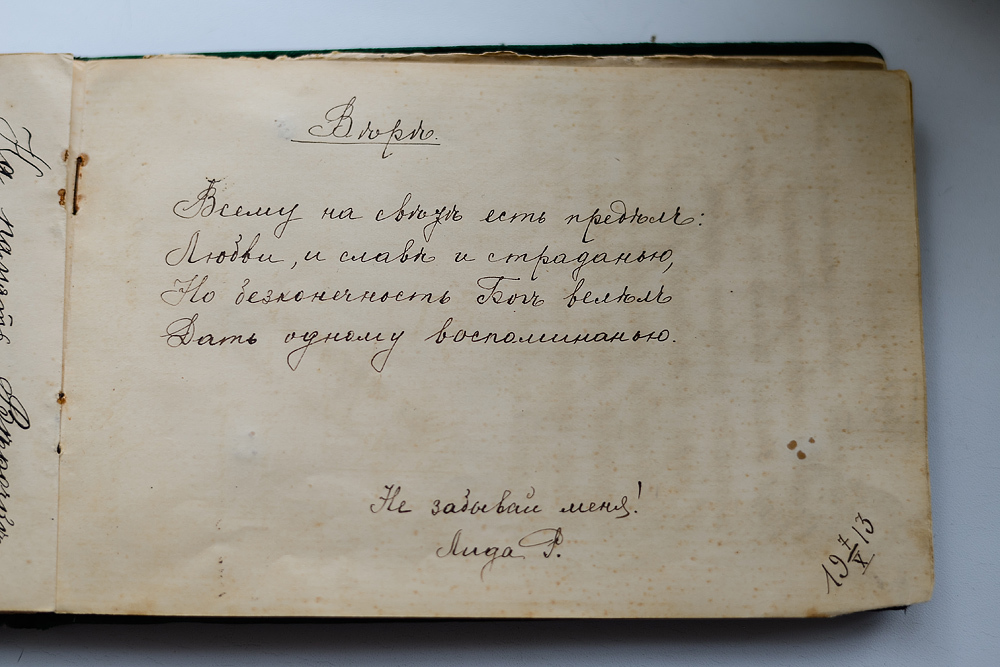 Вѣрѣ.
Всему на свѣтѣ есть предѣлъ:
Любви, и славѣ и страданью,
Но безконечность Богъ велѣлъ
Дать одному воспоминанью.
Не забывай меня!
Лида Р.
19 7/X 13
На память